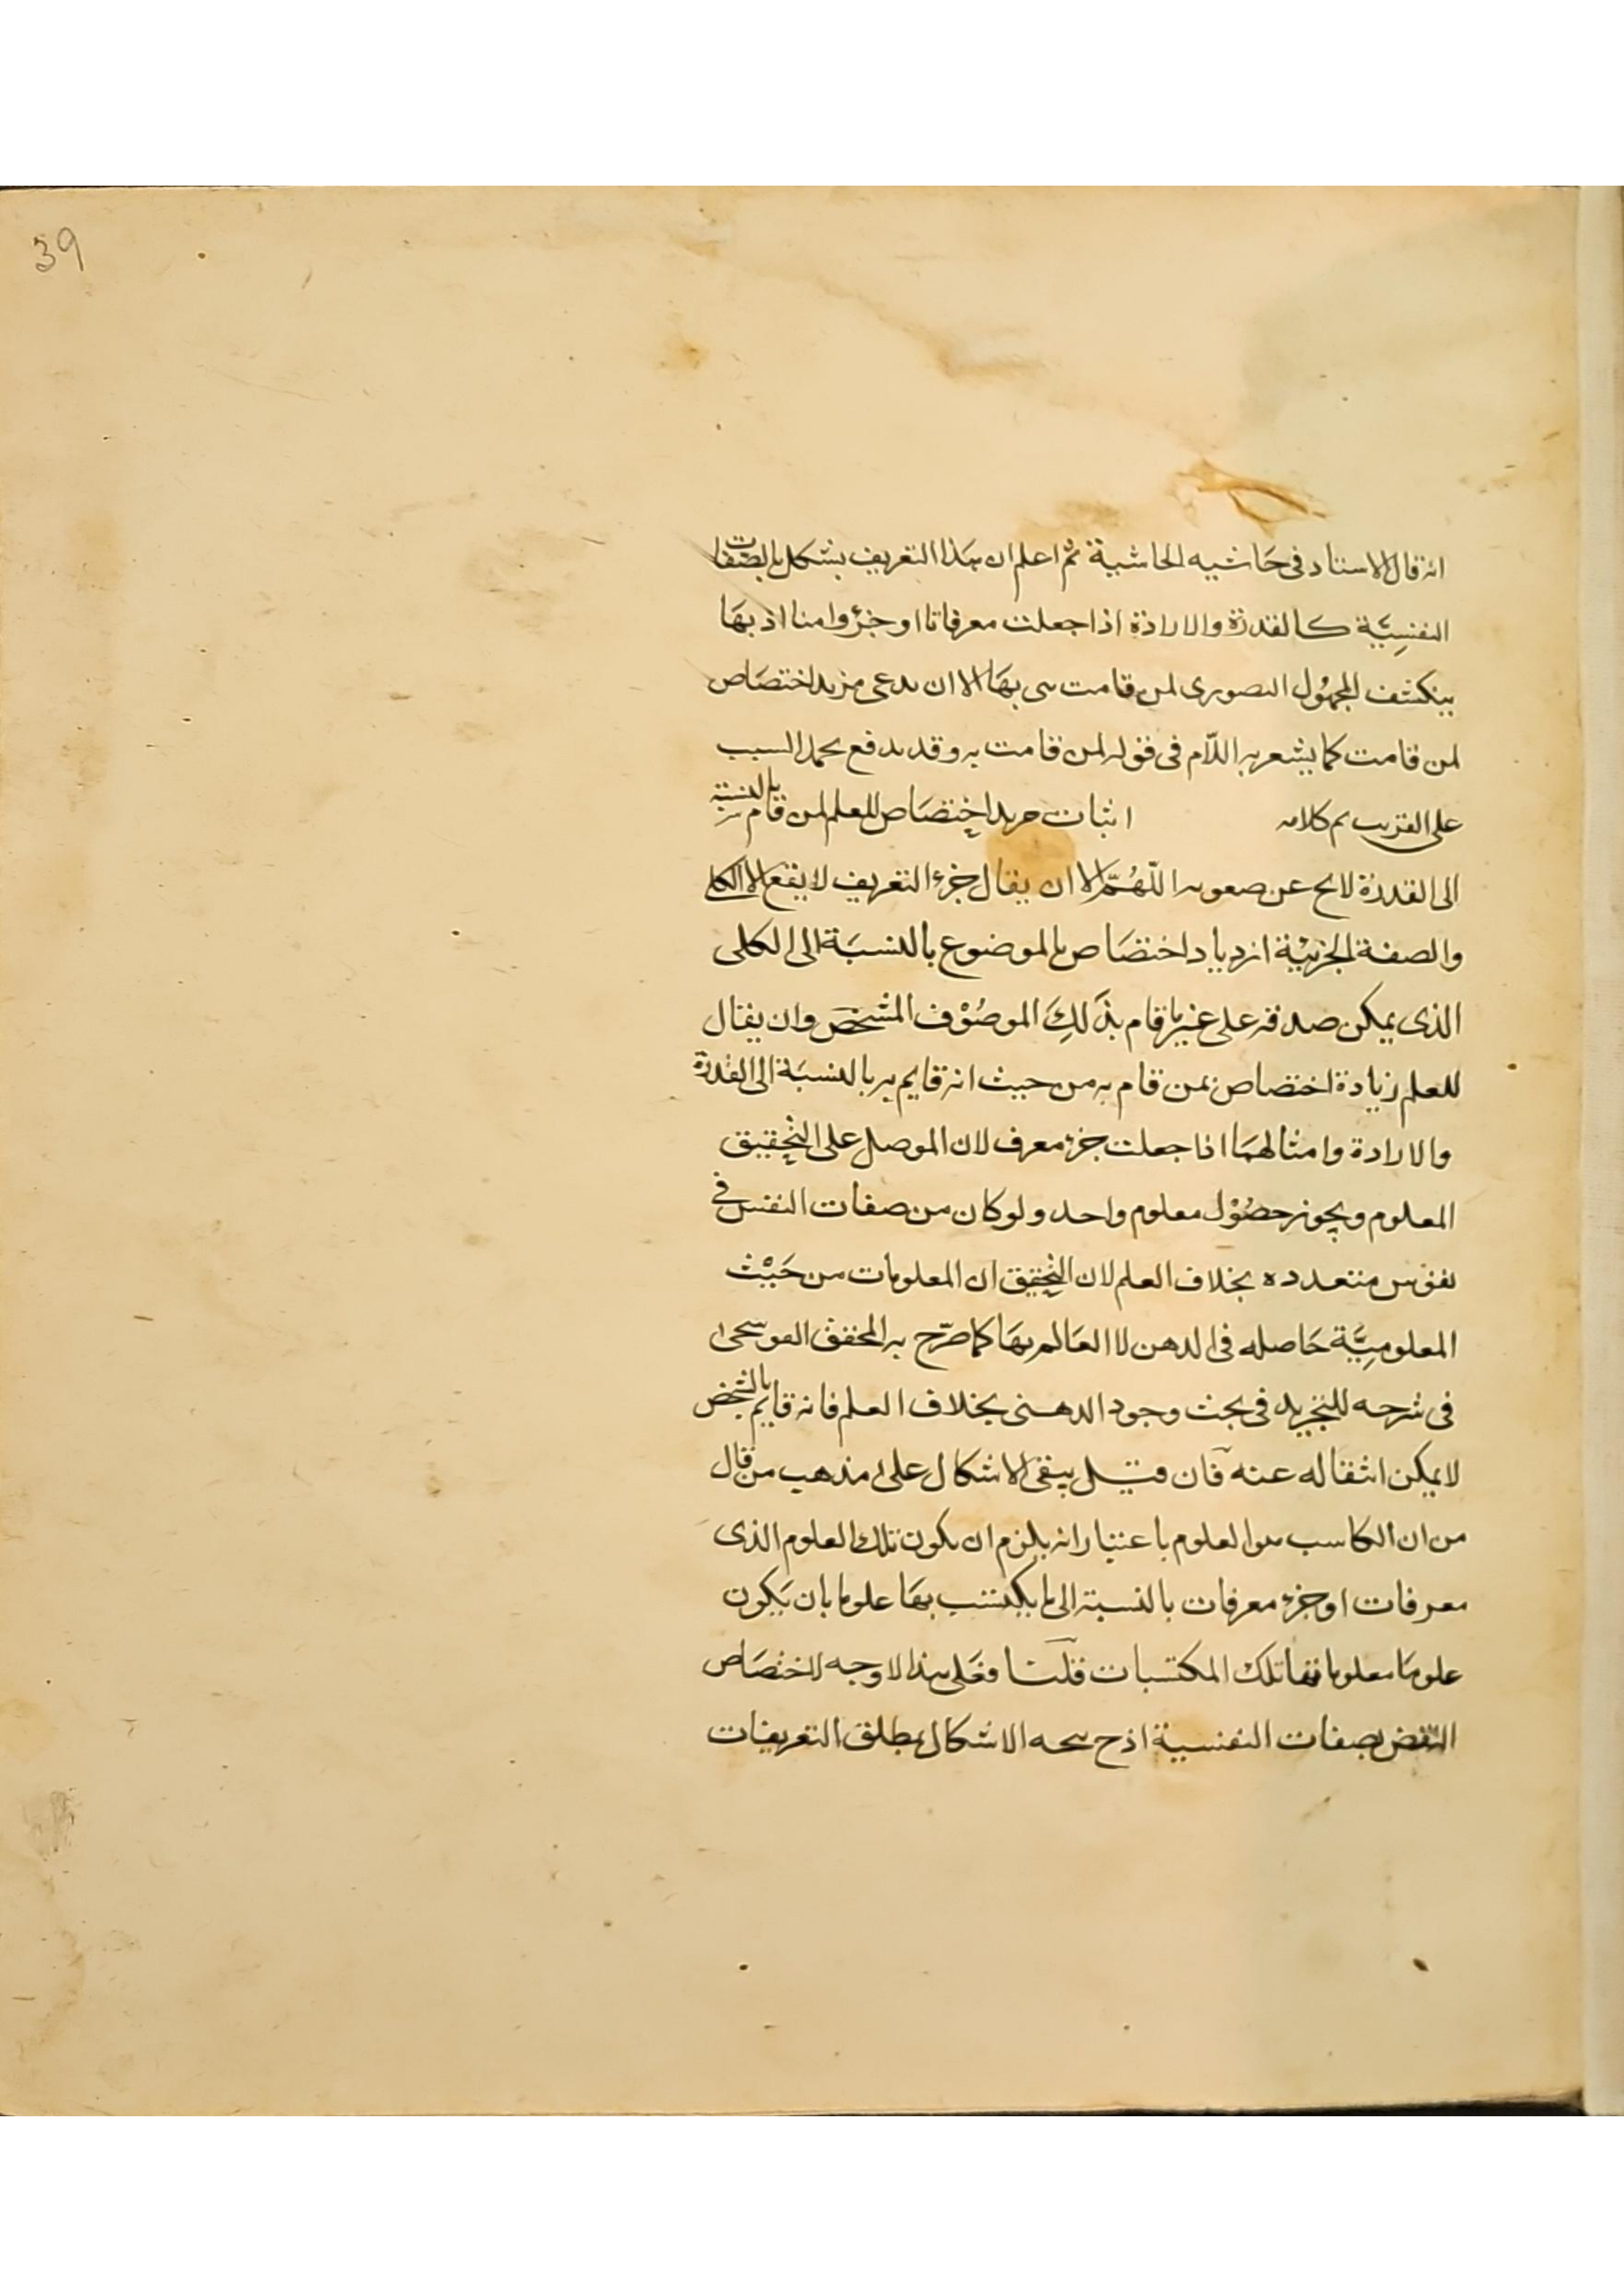 39
انه قال الاستاد فى حَاشيه الحاشية ثم اعلم ان هذا التعريف يشكل بالصّفات
النفسِيَّة كالقدرة والارادة اذا جعلت معرفاتا او جزؤا منا اذ بهَا
ينكشف المجهُول التصورى لمن قامت هى بهَا الا ان يدعى مزيد اختصَاص
لمن قامت كما يشعر به اللّام فى قوله لمن قامت به وقد يدفع بحمل السبب
على القريب تم كلامه اثبات مزيد اختصَاص للعلم لمن قام به بالنسبة
الى القدرة لا يخ عن صعوبه اللّهُمّ الا ان يقال جزء التعريف لا يقع الا الكلى
والصفة الجزئيّة ازدياد اختصَاص بالموضوع بالنسبَة الى الكلى
الذى يمكن صدقه على غير ما قام بذَلِكَ الموصُوْف المشخصَ وان يقال
للعلم زيادة اختصاص بمن قام به من حيث انه قايم به بالنسبَة الى القدرة
والارادة وامثالهمَا اذا جعلت جزء معرف لان الموصل على التحقيق
المعلوم ويجوز حصُوْل معلوم واحد ولو كان من صفات النفس فى
نفوس متعدده بخلاف العلم لان التحقيق ان المعلومات من حَيْث
المعلومِيَّة حَاصله فى الدهن لا العَالم بهَا كما صرّح به المحقق القوسجى
فى شرحه للتجريد فى بحث وجود الدهنى بخلاف العلم فانه قايم بالشخص
لا يمكن انتقاله عنه فان قيل يبقى الاشكال على مذهب من قال
من ان الكاسب هو العلوم باعتبار انه يلزم ان يكون تلك العلوم الذى
معرفات او جزء معرفات بالنسبة الى ما يكتسب بهَا علوما بان يَكون
علومَا معلوماتها تلك المكتسبات قلنا فعَلى هذا لا وجه لاختصَاص
النقض بصفات النفسية اذ ح يتجه الاشكال بمطلق التعريفات